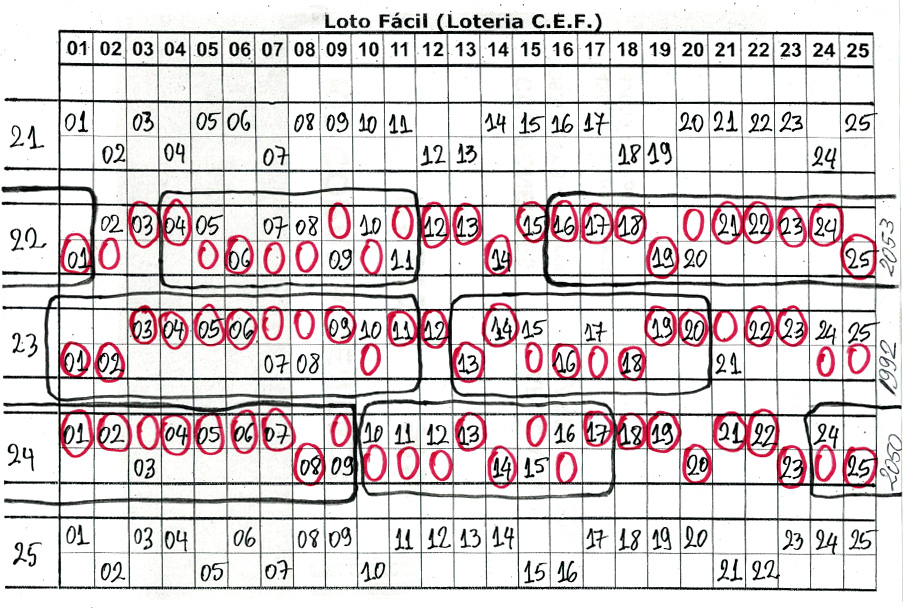 Loto Fácil (Loteria C.E.F.)
01 02 03 04 05 06 07 08 09 10 11 12 13 14 15 16 17 18 19 20 21 22 23 24 25
21
01 03 05 06 08 09 10 11 14 15 16 17 20 21 22 23 25
02 04 07 12 13 18 19 24
22
02 03 04 05 07 08 10 12 13 15 16 17 18 21 22 23 24
01 06 09 11 14 19 20 25
2053
23
03 04 05 06 09 10 11 12 14 15 17 19 20 22 23 24 25
01 02 07 08 13 16 18 21
1992
24
01 02 04 05 06 07 10 11 12 13 16 17 18 19 21 22 24
03 08 09 14 15 20 23 25
2050
25
01 03 04 06 08 09 11 12 13 14 17 18 19 20 23 24 25
02 05 07 10 15 16 21 22